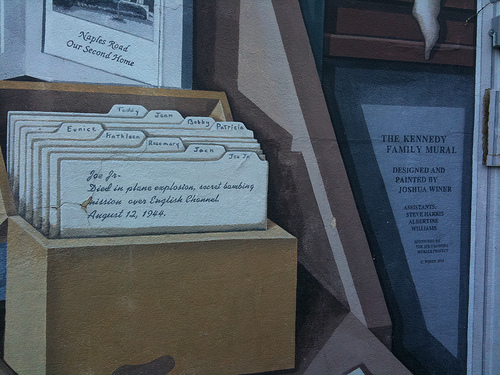 Naples Road
Our Second Home
Teddy
Jean
Bobby
Patricia
Eunice
Kathleen
Rosemary
Jack
Joe Jr
Joe Jr-
Died in plane explosion, secret bombing
mission over English Channel
August 12, 1944.
THE KENNEDY
FAMILY MURAL
DESIGNED AND
PAINTED BY
JOSHUA WINER
ASSISTANTS:
STEVE HARRIS
ALBERTINE
WILLIAMS